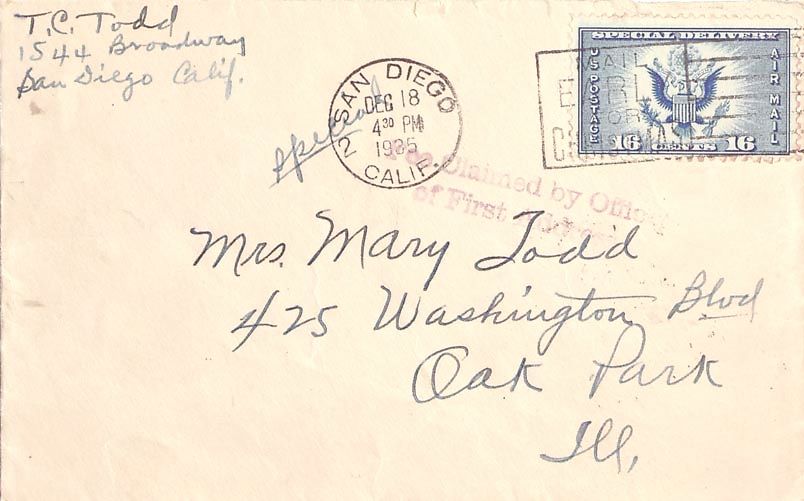 T.C. Todd
1544 Broadway
San Diego Calif.
special
2 SAN DIEGO CALIF.
DEC 18
4 30 PM
1935
MAIL
EARLY
FOR
CHRISTMAS
SPECIAL DELIVERY
U.S. POSTAGE
AIR MAIL
16 CENTS 16
Fee Claimed by Office
of First Address
Mrs. Mary Todd
425 Washington Blvd
Oak Park
Ill.